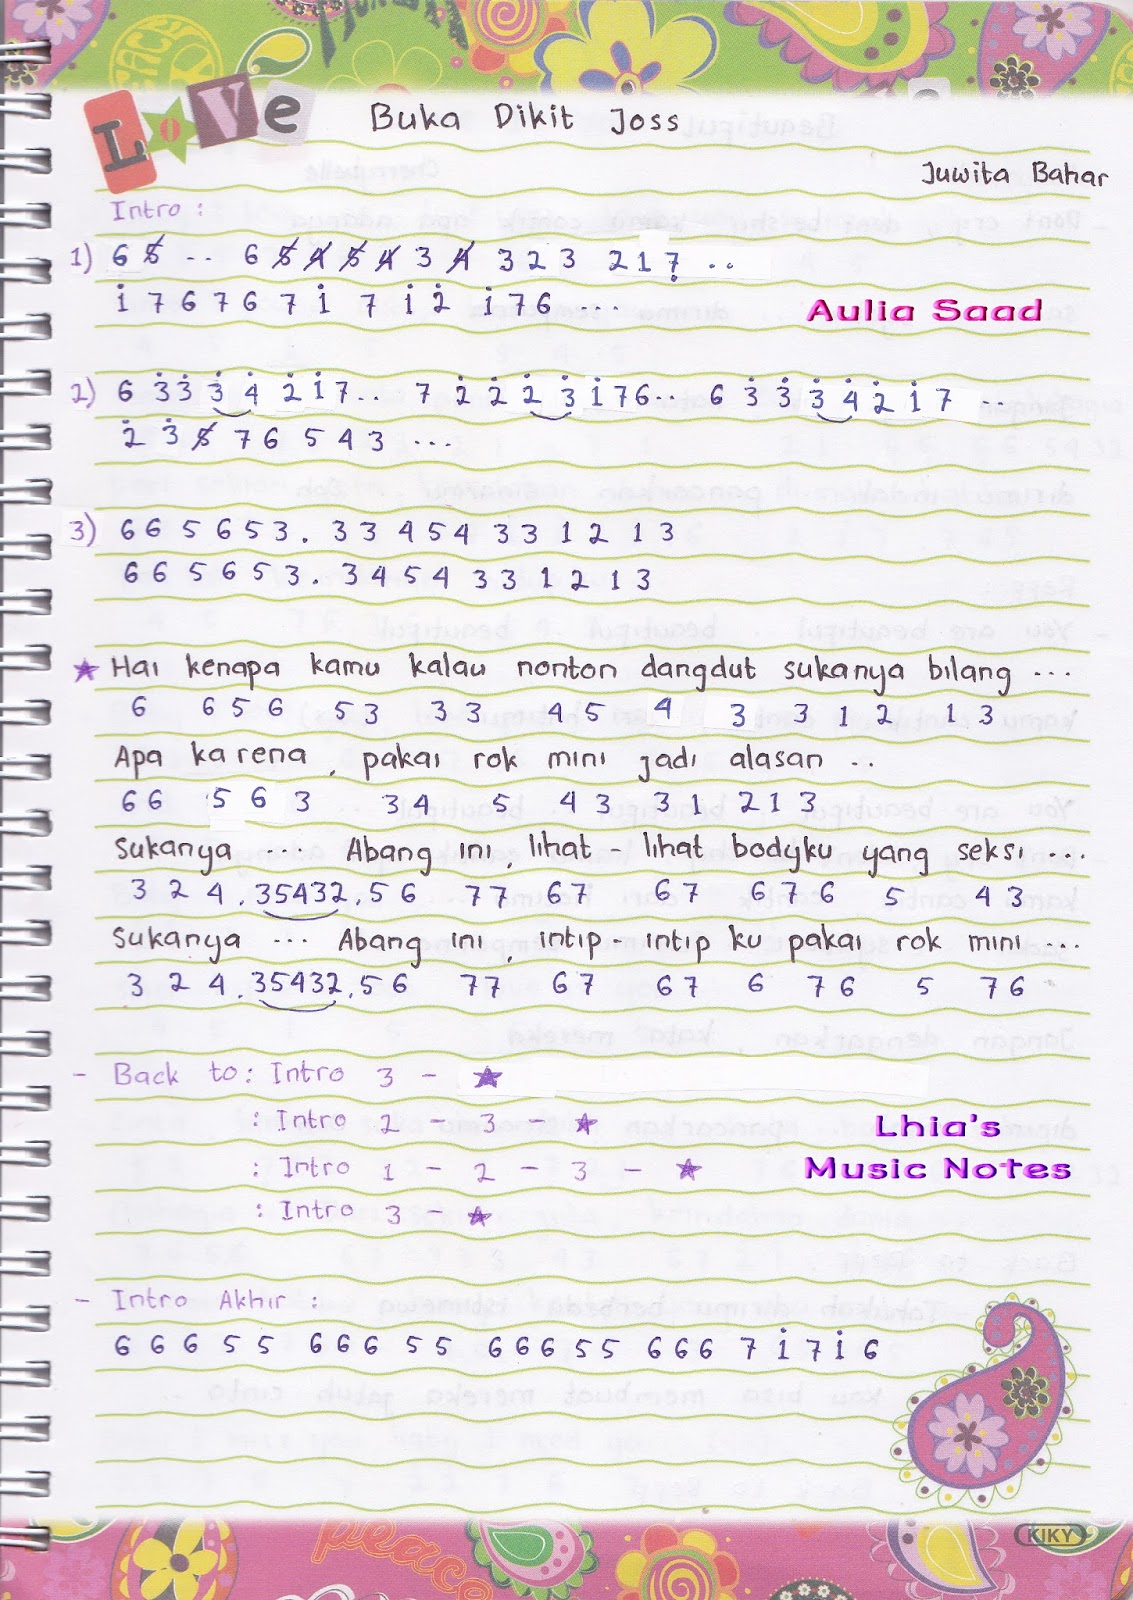 LOVE
Buka Dikit Joss
Juwita Bahar
Intro :
1) 6 5̸ .. 6 5̸ 4̸ 5̸ 4̸ 3 4̸ 3 2 3 2 1 7̣ ..
i̇ 7 6 7 6 7 i̇ 7 i̇ 2̇ i̇ 7 6 ...
Aulia Saad
2) 6 3̇ 3̇ 3̇ 4̇ 2̇ i̇ 7 .. 7 2̇ 2̇ 2̇ 3̇ i̇ 7 6 .. 6 3̇ 3̇ 3̇ 4̇ 2̇ i̇ 7 ..
2̇ 3̇ 5̸ 7 6 5 4 3 ...
3) 6 6 5 6 5 3 . 3 3 4 5 4 3 3 1 2 1 3
6 6 5 6 5 3 . 3 4 5 4 3 3 1 2 1 3
★ Hai kenapa kamu kalau nonton dangdut sukanya bilang ...
6 6 5 6 5 3 3 3 4 5 4 3 3 1 2 1 3
Apa karena, pakai rok mini jadi alasan ..
6 6 5 6 3 3 4 5 4 3 3 1 2 1 3
Sukanya ... Abang ini, lihat - lihat bodyku yang seksi ....
3 2 4 . 35432 . 5 6 7 7 6 7 6 7 6 7 6 5 4 3
Sukanya ... Abang ini, intip - intip ku pakai rok mini ...
3 2 4 . 35432 . 5 6 7 7 6 7 6 7 6 7 6 5 7 6
- Back to : Intro 3 - ★
: Intro 2 - 3 - ★
: Intro 1 - 2 - 3 - ★
: Intro 3 - ★
Lhia's
Music Notes
- Intro Akhir :
6 6 6 5 5 6 6 6 5 5 6 6 6 5 5 6 6 6 7 i̇ 7 i̇ 6
peace
KIKY